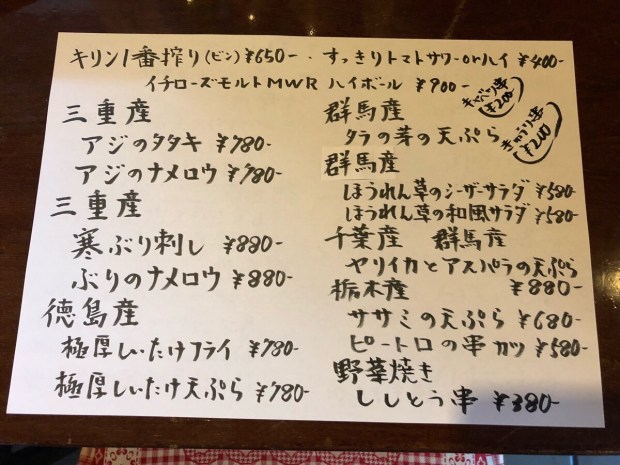 キリン1番搾り(ビン)¥650-・すっきりトマトサワーorハイ ¥400-
イチローズモルトMWR ハイボール ¥900-
三重産
アジのタタキ ¥780-
アジのナメロウ ¥780-
三重産
寒ぶり刺し ¥880-
ぶりのナメロウ ¥880-
徳島産
極厚しいたけフライ ¥780-
極厚しいたけ天ぷら ¥780-
群馬産
タラの芽の天ぷら
¥200
きゅうり串
¥200
群馬産
ほうれん草のシーザーサラダ ¥580-
ほうれん草の和風サラダ ¥580-
千葉産 群馬産
ヤリイカとアスパラの天ぷら
¥880-
栃木産
ササミの天ぷら ¥680-
ピートロの串カツ ¥580-
野菜焼き
ししとう串 ¥380-